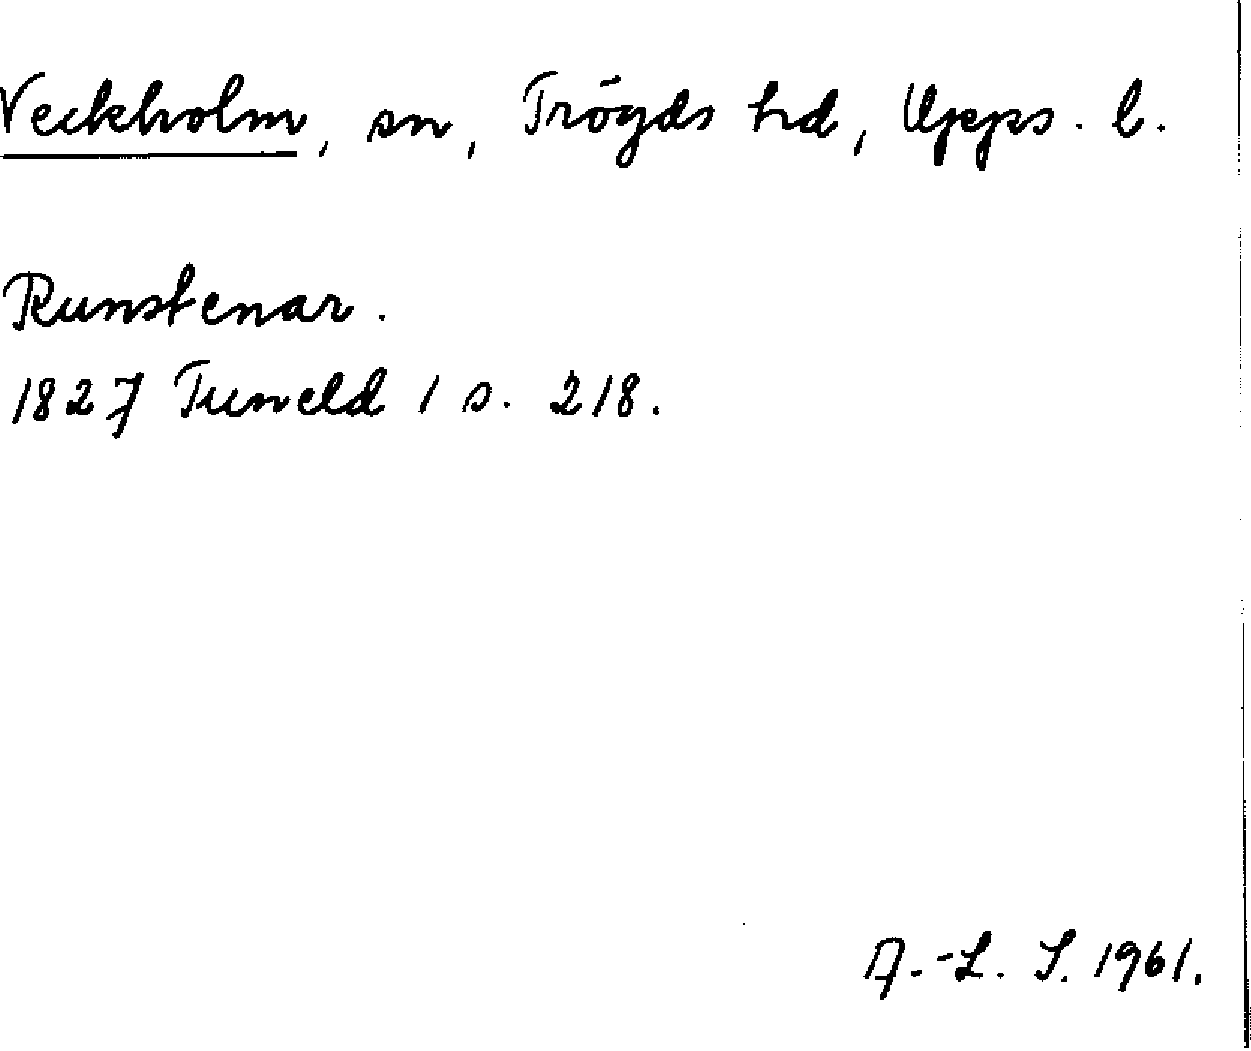 Veckholm, sn, Trögds hd, Upps. l.
Runstenar.
1827 Tuneld 1 s. 218.
A.-L. S. 1961.